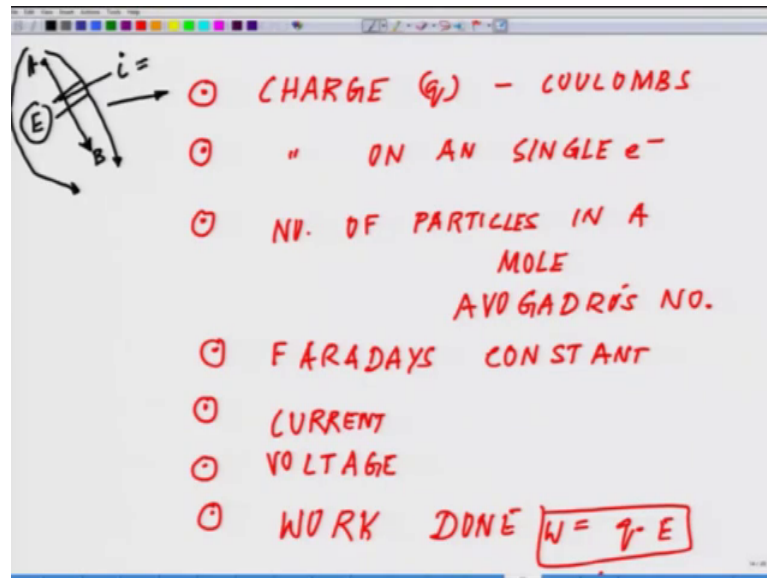 A
i =
E
B
CHARGE (q) - COULOMBS
" ON AN SINGLE e⁻
NO. OF PARTICLES IN A
MOLE
AVOGADRO'S NO.
FARADAYS CONSTANT
CURRENT
VOLTAGE
WORK DONE W = q E